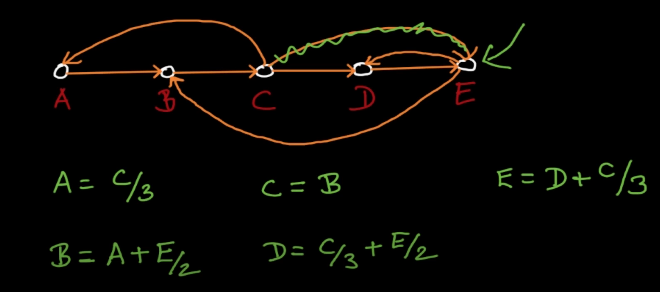 A B C D E
A = C/3 C = B E = D + C/3
B = A + E/2 D = C/3 + E/2